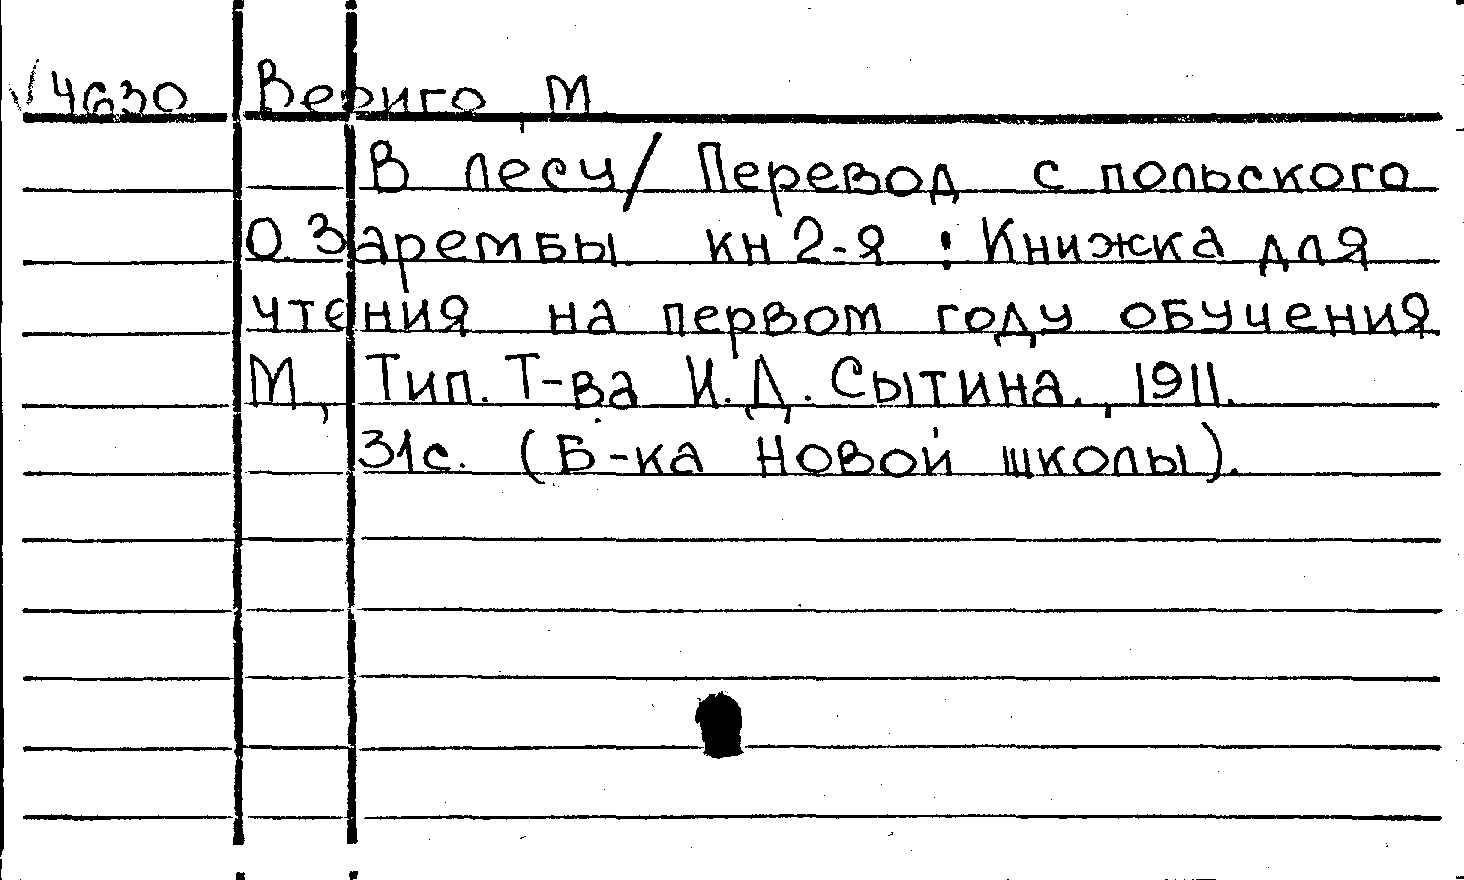 √4630 Вериго, М
В лесу/ Перевод с польского
О. Зарембы кн 2-я : Книжка для
чтения на первом году обучения
М, Тип. Т-ва И.Д. Сытина., 1911.
31с. (Б-ка новой школы).